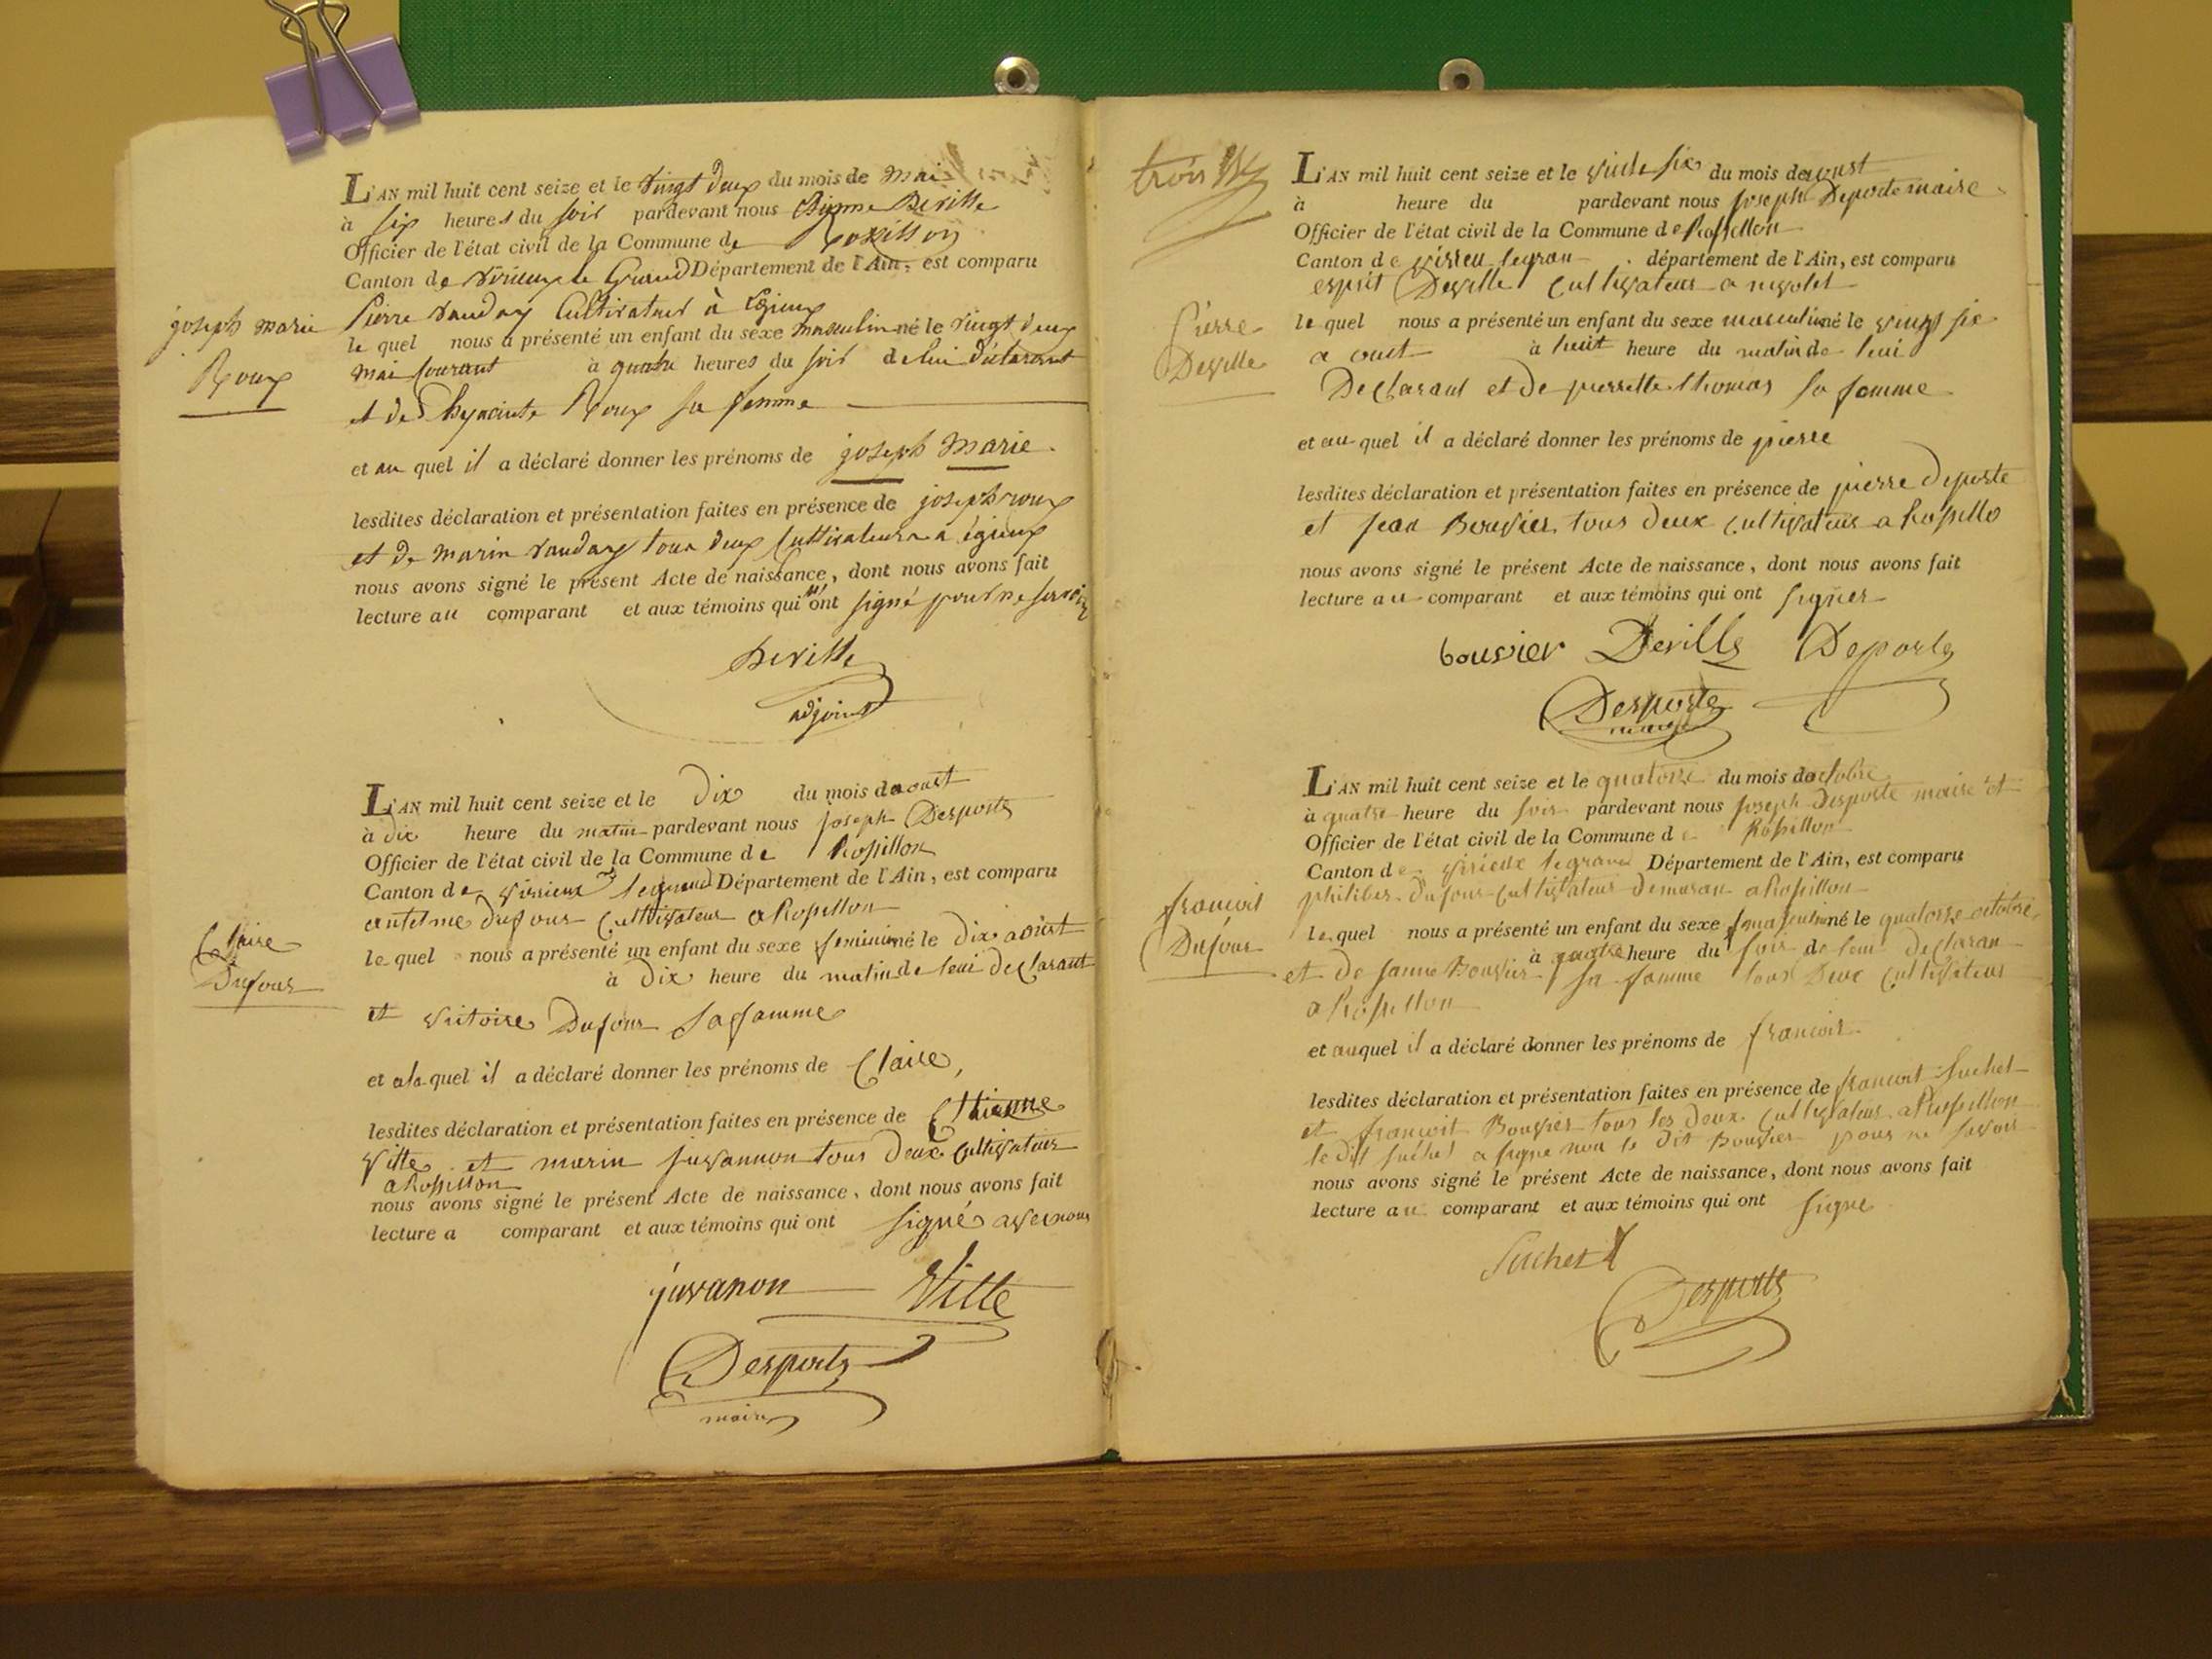 L'AN mil huit cent seize et le vingt deux du mois de mai
à six heures du soir pardevant nous Deville
Officier de l'état civil de la Commune de Rossillon
Canton de Virieux le Grand Département de l'Ain, est comparu
Pierre vauday Cultivateur à Egieux
joseph marie
Roux
le quel nous a présenté un enfant du sexe masculin né le vingt deux
mai courant à quatre heures du soir de lui déclarant
et de hyacinte Roux sa femme
et au quel il a déclaré donner les prénoms de joseph marie
lesdites déclaration et présentation faites en présence de joseph roux
et de marin vauday tous deux Cultivateurs a égieux
nous avons signé le présent Acte de naissance, dont nous avons fait
lecture au comparant et aux témoins qui n'ont signé pour ne savoir
Deville
adjoint
L'AN mil huit cent seize et le dix du mois daoust
à dix heure du matin pardevant nous joseph Desporte
Officier de l'état civil de la Commune de Rossillon
Canton de Virieux legrand Département de l'Ain, est comparu
antelme dufour Cultivateur a Rossillon
Claire
Dufour
le quel nous a présenté un enfant du sexe feminin né le dix aoust
à dix heure du matin de leui declarant
et victoire Dufour sa famme
et ala quel il a déclaré donner les prénoms de Claire,
lesdites déclaration et présentation faites en présence de Etienne
Vitte et marin juvannon tous deux Cultivateur
a Rossillon
nous avons signé le présent Acte de naissance, dont nous avons fait
lecture a comparant et aux témoins qui ont signé avec nous
juvanon Vitte
Desporte
maire
trois
L'AN mil huit cent seize et le six du mois de aoust
à heure du pardevant nous joseph Deporte maire
Officier de l'état civil de la Commune de Rossillon
Canton de virieu legran département de l'Ain, est comparu
esprit Deville cultivateur a
Pierre
Deville
le quel nous a présenté un enfant du sexe masculin né le vingt six
a oust à huit heure du matin de leui
Declarant et de pierrette thomas sa famme
et au quel il a déclaré donner les prénoms de pierre
lesdites déclaration et présentation faites en présence de pierre deporte
et jean Bouvier tous deux cultivateur a Rossillo
nous avons signé le présent Acte de naissance, dont nous avons fait
lecture au comparant et aux témoins qui ont signer
bouvier Deville Deporte
Desporte
maire
L'AN mil huit cent seize et le quatorse du mois doctobre
à quatre heure du soir pardevant nous joseph desporte maire et
Officier de l'état civil de la Commune de Rossillon
Canton de virieux legrand Département de l'Ain, est comparu
philiber dufour cultivateur demuran a Rossillon
francoit
Dufour
le quel nous a présenté un enfant du sexe masculin né le quatorse octobre
à quatre heure du soir de leui declaran
et de janne Bouvier sa famme tous deux cultivateur
a Rossillon
et auquel il a déclaré donner les prénoms de francoit
lesdites déclaration et présentation faites en présence de francoit suchet
et francoit Bouvier tous les deux cultivateur a Rossillon
le dit suchet a signe non le dit Bouvier pour ne savoir
nous avons signé le présent Acte de naissance, dont nous avons fait
lecture au comparant et aux témoins qui ont signe
Suchet
Desporte